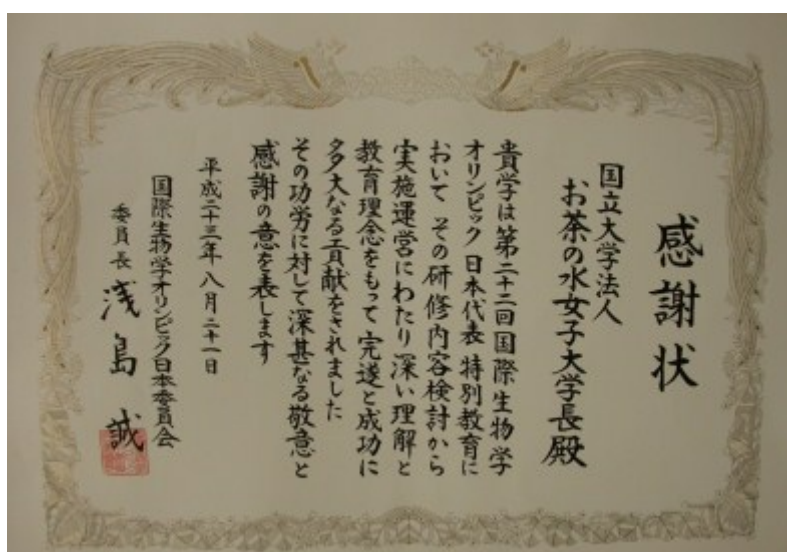 感謝状
国立大学法人
お茶の水女子大学長殿
貴学は第二十二回国際生物学
オリンピック日本代表特別教育に
おいて その研修内容検討から
実施運営にわたり深い理解と
教育理念をもって完遂と成功に
多大なる貢献をされました
その功労に対して深甚なる敬意と
感謝の意を表します
平成二十三年八月二十一日
国際生物学オリンピック日本委員会
委員長 浅島 誠